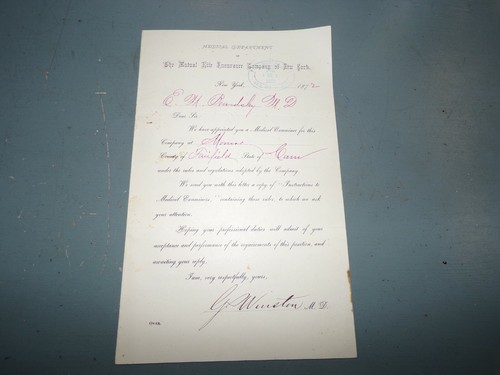 MEDICAL DEPARTMENT
The Mutual Life Insurance Company of New York,
New York, 187
M D
Dear Sir
We have appointed you a Medical Examiner for this
Company at Monroe
County of Fairfield State of Conn
under the rules and regulations adopted by the Company.
We send you with this letter a copy of "Instructions to
Medical Examiners," containing these rules, to which we ask
your attention.
Hoping your professional duties will admit of your
acceptance and performance of the requirements of this position, and
awaiting your reply,
I am, very respectfully, yours,
Winston M. D.